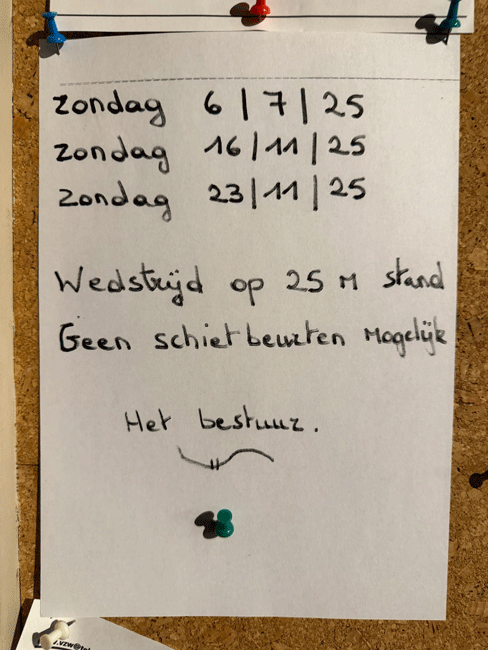 zondag 6 | 7 | 25
zondag 16 | 11 | 25
zondag 23 | 11 | 25
Wedstrijd op 25 M stand
Geen schietbeurten Mogelijk
Het bestuur.